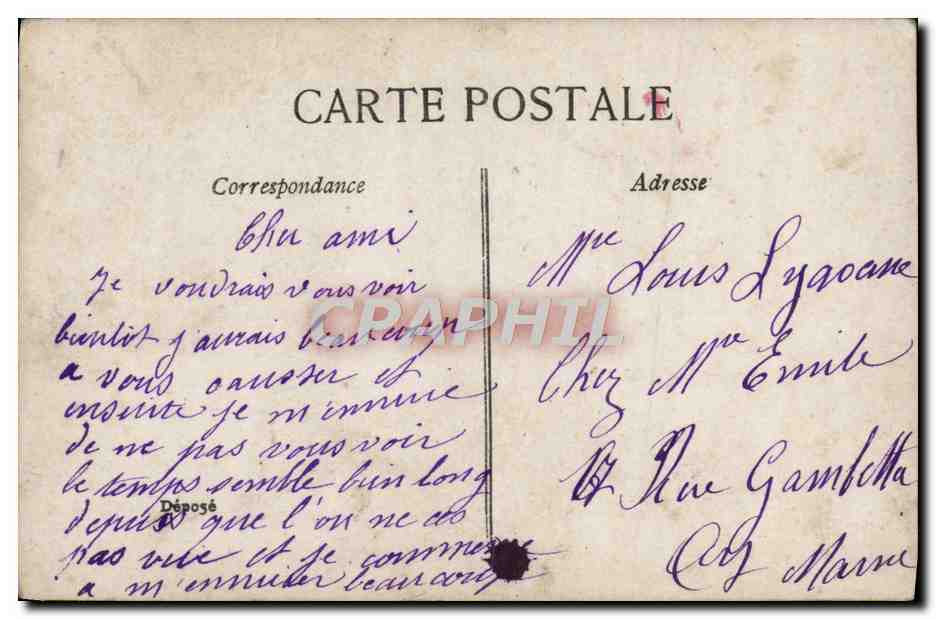 CARTE POSTALE
Correspondance
Cher ami
Je voudrais vous voir
bientot j'aurais beaucoup
a vous causser et
ensuite je m'ennuie
de ne pas vous voir
le temps semble bien long
Déposé
depuis que l'on ne ces
pas vue et je commence
a m'ennuier beaucoup
Adresse
Mr Louis
Chez Mr Emile
17 Rue Gambetta
Ay Marne
CPAPHIL